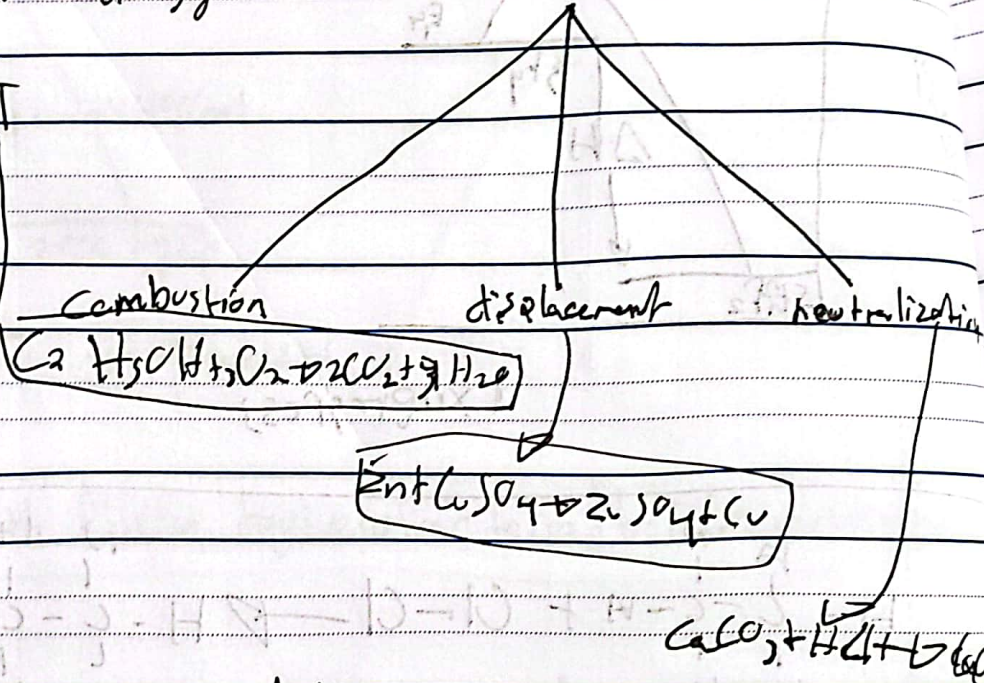 Combustion displacement neutralization
C2 H5OH+3O2→2CO2+3H2O
Zn+CuSO4→ZnSO4+Cu
CaCO3+HCl→